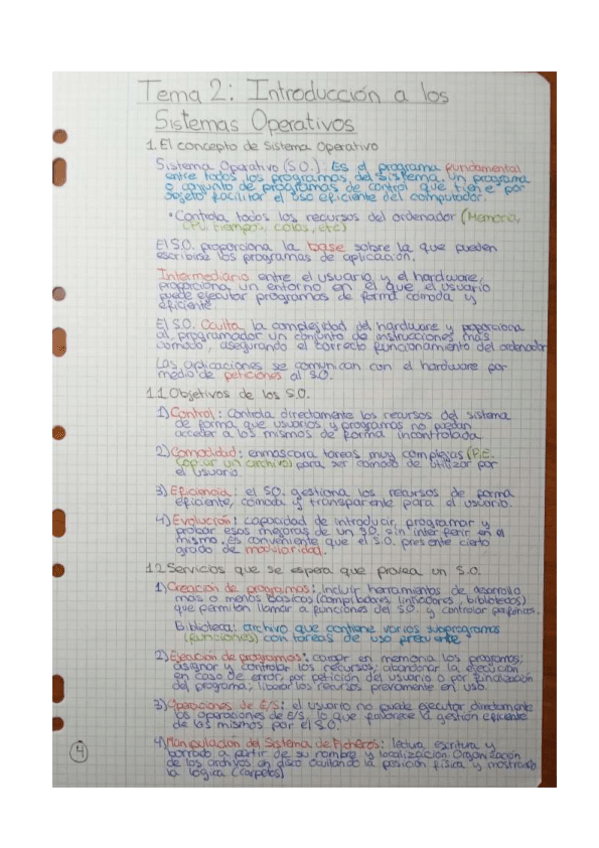 Tema 2: Introducción a los
Sistemas Operativos
1. El concepto de Sistema Operativo
Sistema Operativo (S.O.): Es el programa fundamental
entre todos los programas del sistema. Un programa
o conjunto de programas de control que tiene por
objeto facilitar el uso eficiente del computador.
• Controla todos los recursos del ordenador (Memoria,
CPU, tiempos, colas, etc)
El S.O. proporciona la base sobre la que pueden
escribirse los programas de aplicación.
Intermediario entre el usuario y el hardware,
proporciona un entorno en el que el usuario
puede ejecutar programas de forma cómoda y
eficiente.
El S.O. Oculta la complejidad del hardware y proporciona
al programador un conjunto de instrucciones más
cómodo, asegurando el correcto funcionamiento del ordenador
Las aplicaciones se comunican con el hardware por
medio de peticiones al S.O.
1.1. Objetivos de los S.O.
1) Control: Controla directamente los recursos del sistema
de forma que usuarios y programas no puedan
acceder a los mismos de forma incontrolada.
2) Comodidad: enmascara tareas muy complejas (P.E.
copiar un archivo) para ser cómodo de utilizar por
el usuario.
3) Eficiencia: el S.O. gestiona los recursos de forma
eficiente, cómoda y transparente para el usuario.
4) Evolución: capacidad de introducir, programar y
probar esas mejoras de un S.O. sin interferir en el
mismo. Es conveniente que el S.O. presente cierto
grado de modularidad.
1.2. Servicios que se espera que provea un S.O.
1) Creación de programas: Incluir herramientas de desarrollo
más o menos básicas (compiladores, linkadores, bibliotecas)
que permiten llamar a funciones del S.O. y controlar periféricos.
Biblioteca: archivo que contiene varios subprogramas
(funciones) con tareas de uso frecuente
2) Ejecución de programas: cargar en memoria los programas;
asignar y controlar los recursos; abandonar la ejecución
en caso de error, por petición del usuario o por finalización
del programa; liberar los recursos previamente en uso.
3) Operaciones de E/S: el usuario no puede ejecutar directamente
las operaciones de E/S, lo que favorece la gestión eficiente
de los mismos por el S.O.
4) Manipulación del Sistema de Ficheros: lectura, escritura y
borrado a partir de su nombre y localización. Organización
de los archivos en disco ocultando la posición física y mostrando
la lógica (carpetas)
4